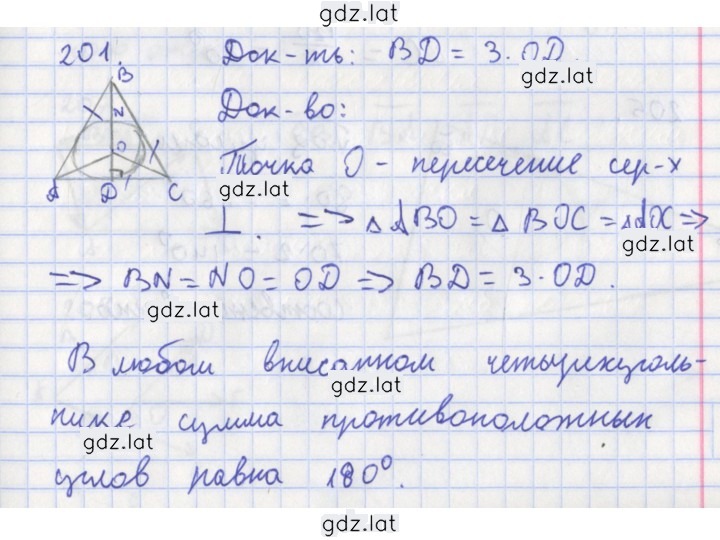 gdz.lat
201. Док-ть: BD = 3·OD.
gdz.lat
B
N
O
A D C
Док-во:
Точка O - пересечение сер-х
gdz.lat
⊥. => ΔABO = ΔBOC = ΔAOC =>
gdz.lat
=> BN = NO = OD => BD = 3·OD.
gdz.lat
В любом вписанном четырехуголь-
gdz.lat
нике сумма противоположных
gdz.lat
углов равна 180°.
gdz.lat